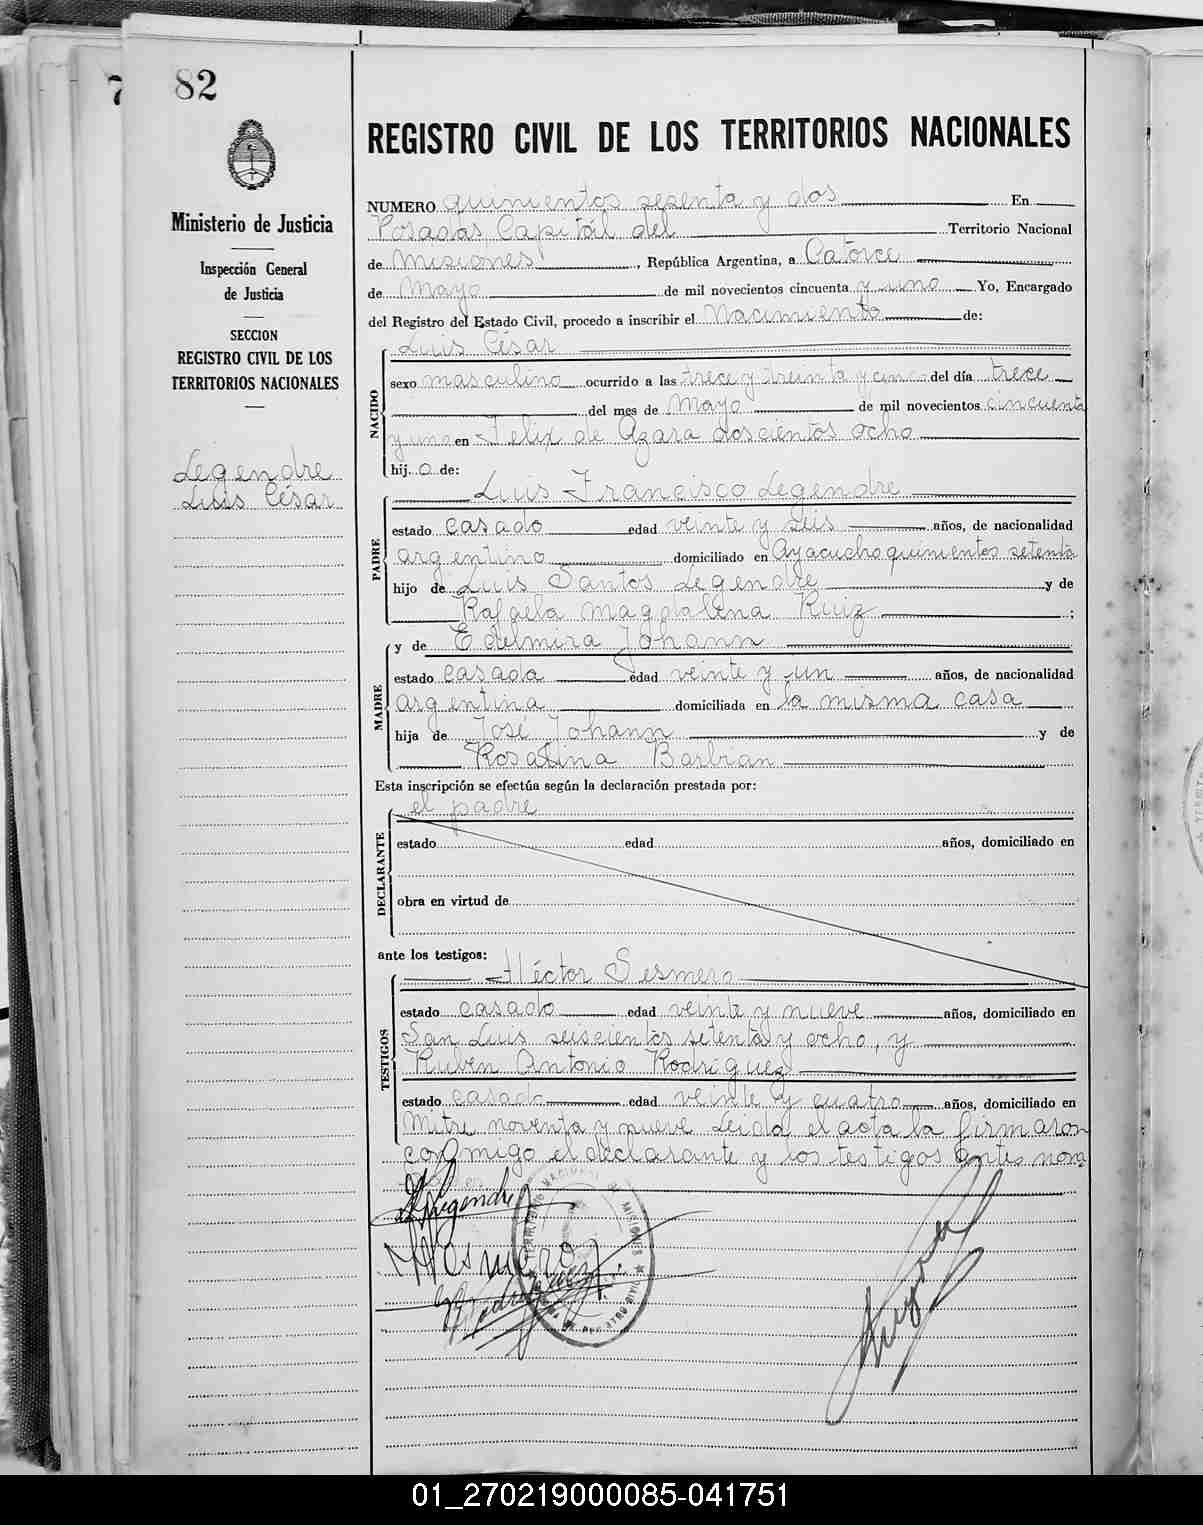 82
Ministerio de Justicia
Inspección General
de Justicia
SECCION
REGISTRO CIVIL DE LOS
TERRITORIOS NACIONALES
Legendre
Luis César
REGISTRO CIVIL DE LOS TERRITORIOS NACIONALES
NUMERO quinientos sesenta y dos En
Posadas, Capital del Territorio Nacional
de Misiones, República Argentina, a Catorce
de Mayo de mil novecientos cincuenta y uno Yo, Encargado
del Registro del Estado Civil, procedo a inscribir el Nacimiento de:
NACIDO
Luis César
sexo masculino ocurrido a las trece y treinta y cinco del día trece
del mes de Mayo de mil novecientos cincuenta
y uno en Felix de Azara doscientos ocho
hij o de:
PADRE
Luis Francisco Legendre
estado casado edad veinte y seis años, de nacionalidad
argentino domiciliado en Ayacucho quinientos setenta
hijo de Luis Santos Legendre y de
Rafaela Magdalena Ruiz ;
MADRE
y de Edelmira Johann
estado casada edad veinte y un años, de nacionalidad
argentina domiciliada en la misma casa
hija de José Johann y de
Rosalina Barbian
Esta inscripción se efectúa según la declaración prestada por:
el padre
DECLARANTE
estado edad años, domiciliado en
obra en virtud de
ante los testigos:
TESTIGOS
Héctor Sesmero
estado casado edad veinte y nueve años, domiciliado en
San Luis seiscientos setenta y ocho, y
Ruben Antonio Rodriguez
estado casado edad veinte y cuatro años, domiciliado en
Mitre noventa y nueve Leida el acta la firmaron
conmigo el declarante y los testigos antes nom
Legendre
01_270219000085-041751